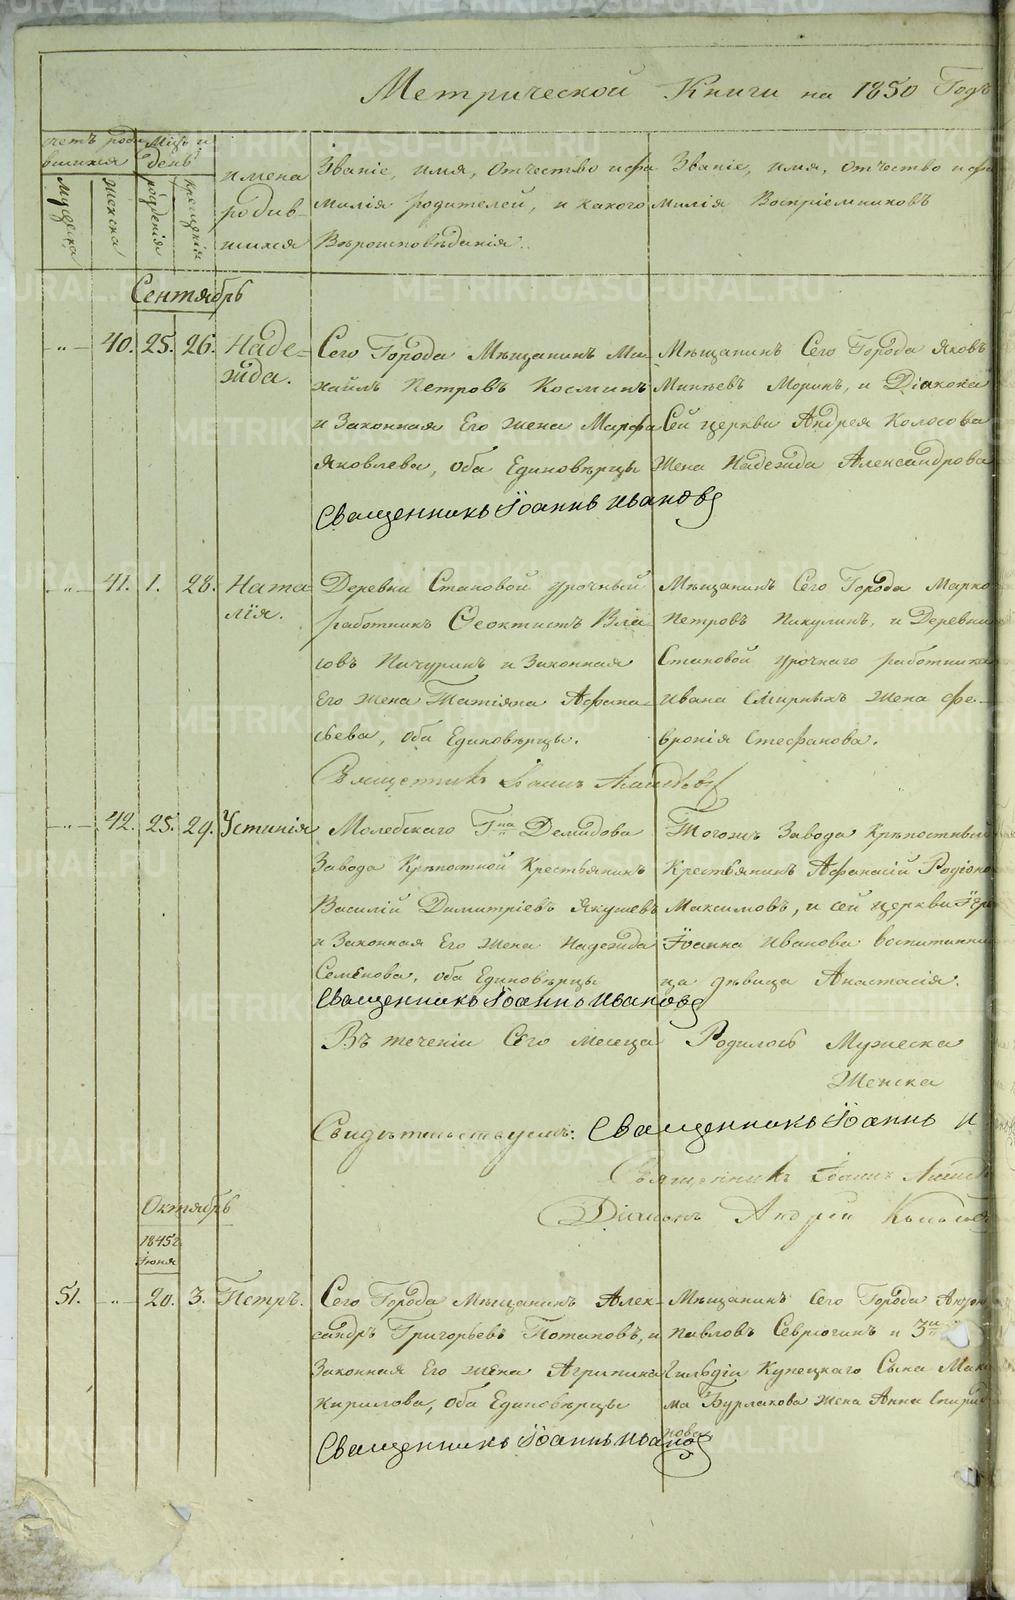 Метрической Книги на 1850 Годъ
счетъ роди
вшихся
Мѣсъ и
день
мужеска
женска
рожденія
крещенія
имена
родив-
шихся
Званіе, имя, отчество и фа-
милія родителей, и какого
Вѣроисповѣданія.
Званіе, имя, отчество и фа
милія Воспріемниковъ
Сентябрь
-"- 40. 25. 26. Наде-
жда.
Сего Города Мѣщанинъ Ми-
хаилъ Петровъ Косминъ
и Законная Его жена Марфа
Яковлева, оба Единовѣрцы
Мѣщанинъ Сего Города Яковъ
Минѣевъ Моринъ, и Діакона
Сей церкви Андрея Колосова
Жена Надежда Александрова
Священникъ Іоаннъ Ивановъ
-"- 41. 1. 28. Ната-
лія.
Деревни Становой урочный
работникъ Ѳеоктистъ Вла-
совъ Пичуринъ и Законная
Его жена Татіяна Афана-
сьева, оба Единовѣрцы.
Мѣщанинъ Сего Города Марко
Петровъ Пикулинъ, и Деревни
Становой урочнаго работника
Ивана Смирныхъ жена Фе-
вронія Стефанова.
Священникъ Іоаннъ
-"- 42. 25. 29. Устинія
Молебскаго Гна Демидова
Завода Крѣпостной Крестьянинъ
Василій Димитріевъ Якушевъ
и Законная Его жена Надежда
Семенова, оба Единовѣрцы
Тогожъ Завода Крѣпостный
Крестьянинъ Афанасій Родіоно
Максимовъ, и сей церкви Іере
Іоанна Иванова воспитанни
ца дѣвица Анастасія.
Священникъ Іоаннъ Ивановъ
Въ теченіи Сего месеца Родилось Мужеска
Женска
Свидѣтельствуемъ: Священникъ Іоаннъ И
Священникъ Іоаннъ
Діаконъ Андрей Колосов
Октябрь
1845г.
Іюня
51. -"- 20. 3. Петръ.
Сего Города Мѣщанинъ Алек-
сандръ Григорьевъ Потаповъ, и
Законная Его жена Агрипина
Кирилова, оба Единовѣрцы
Мѣщанинъ Сего Города Антон
Павловъ Севрюгинъ и 3й
Гильдіи Купецкаго Сына Мака
ма Бурлакова жена Анна Спирид
нова
Священникъ Іоаннъ Ивановъ
METRIKI.GASO-URAL.RU